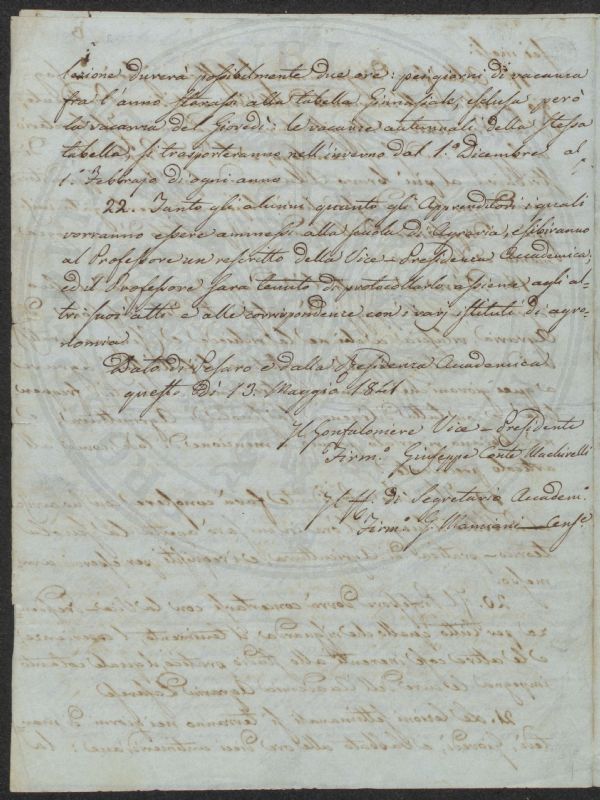 lezione durerà possibilmente due ore: pei giorni di vacanza
fra l'anno starassi alla tabella Ginnasiale, esclusa però
la vacanza del Giovedì: le vacanze autunnali della stessa
tabella, si trasporteranno nell'inverno dal 1.º Dicembre al
1.º Febbrajo di ogni anno.
22. Tanto gli alunni quanto gli Apprenditori i quali
vorranno essere ammessi alla scuola di Agraria, esibiranno
al Professore un rescritto della Vice-Presidenza Accademica,
ed il Professore sarà tenuto di protocollarlo assieme agli al-
tri suoi atti e alle corrispondenze con i varj istituti di agro-
nomia.
Dato di Pesaro e dalla Presidenza Accademica
questo dì 13. Maggio 1841
Il Gonfaloniere Vice-Presidente
Firm.º Giuseppe Conte Machirelli
Il ff. di Segretario Accadem.º
Firm.º G. Mamiani